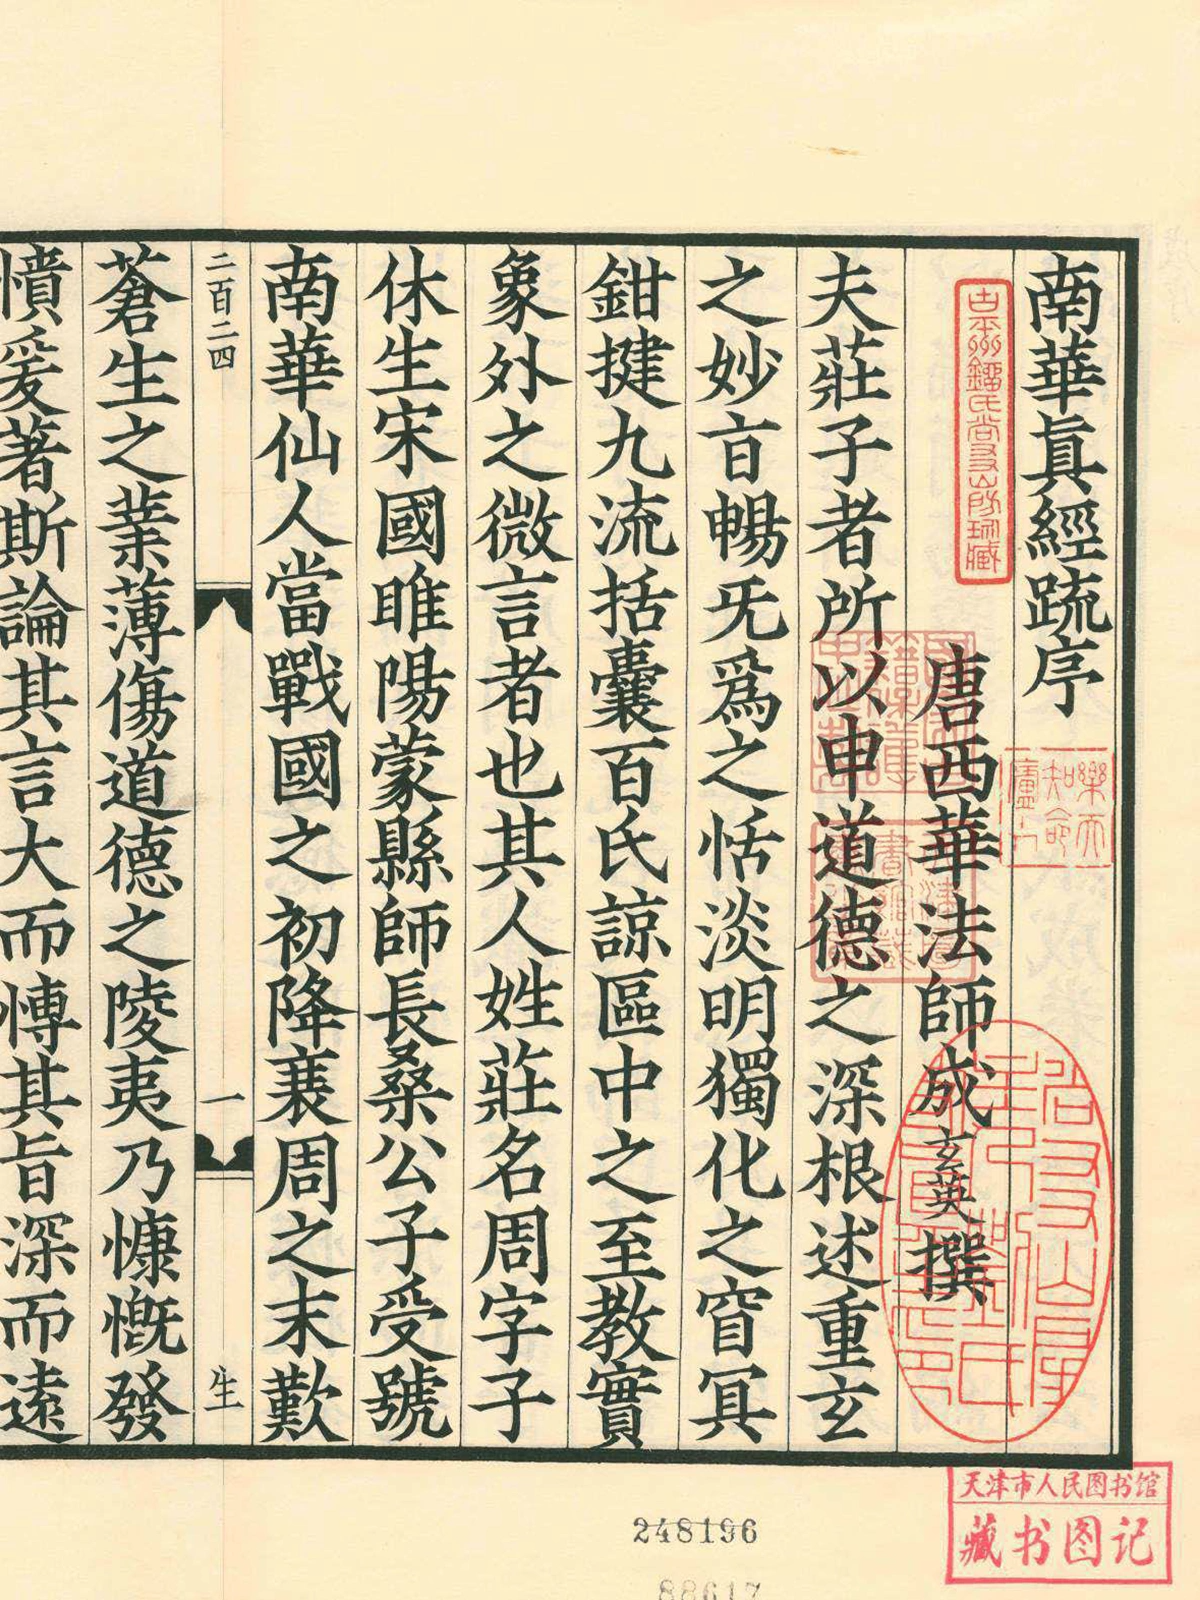 南華眞經疏序
唐西華法師成玄英撰
夫莊子者所以申道德之深根述重玄
之妙㫖暢旡爲之恬淡明獨化之窅冥
鉗揵九流括囊百氏諒區中之至教實
象外之微言者也其人姓莊名周字子
休生宋國睢陽蒙縣師長桑公子受號
南華仙人當戰國之初降衰周之末歎
二百二四
一
生
蒼生之業薄傷道德之陵夷乃慷慨發
憤爰著斯論其言大而博其旨深而遠
樂天知命
天津市人民图书馆
藏书图记
248196
88617